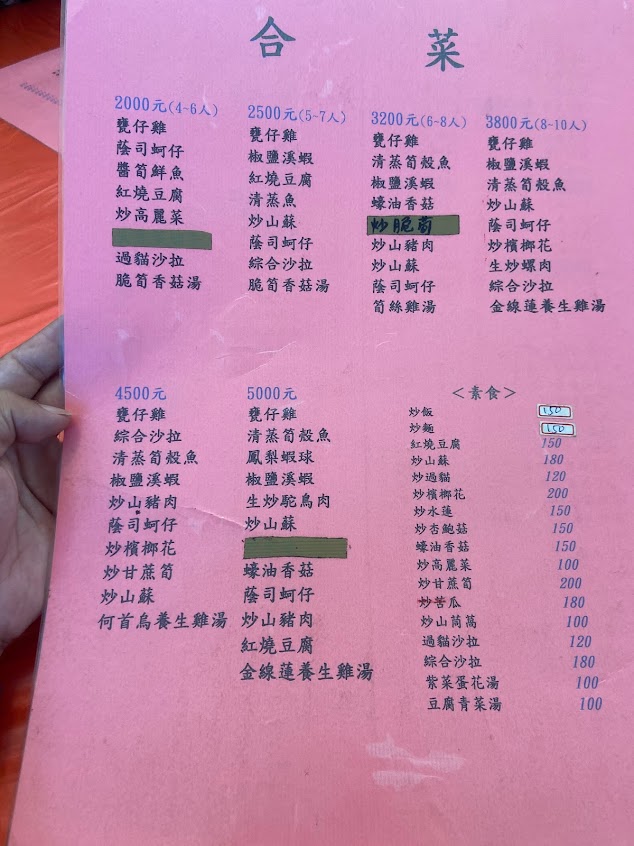 合菜
2000元(4~6人)
甕仔雞
蔭司蚵仔
醬筍鮮魚
紅燒豆腐
炒高麗菜
過貓沙拉
脆筍香菇湯
2500元(5~7人)
甕仔雞
椒鹽溪蝦
紅燒豆腐
清蒸魚
炒山蘇
蔭司蚵仔
綜合沙拉
脆筍香菇湯
3200元(6~8人)
甕仔雞
清蒸筍殼魚
椒鹽溪蝦
蠔油香菇
炒脆筍
炒山豬肉
炒山蘇
蔭司蚵仔
筍絲雞湯
3800元(8~10人)
甕仔雞
椒鹽溪蝦
清蒸筍殼魚
炒山蘇
蔭司蚵仔
炒檳榔花
生炒螺肉
綜合沙拉
金線蓮養生雞湯
4500元
甕仔雞
綜合沙拉
清蒸筍殼魚
椒鹽溪蝦
炒山豬肉
蔭司蚵仔
炒檳榔花
炒甘蔗筍
炒山蘇
何首烏養生雞湯
5000元
甕仔雞
清蒸筍殼魚
鳳梨蝦球
椒鹽溪蝦
生炒鴕鳥肉
炒山蘇
蠔油香菇
蔭司蚵仔
炒山豬肉
紅燒豆腐
金線蓮養生雞湯
＜素食＞
炒飯 150
炒麵 150
紅燒豆腐 150
炒山蘇 180
炒過貓 120
炒檳榔花 200
炒水蓮 150
炒杏鮑菇 150
蠔油香菇 150
炒高麗菜 100
炒甘蔗筍 200
炒苦瓜 180
炒山茼萵 100
過貓沙拉 120
綜合沙拉 180
紫菜蛋花湯 100
豆腐青菜湯 100